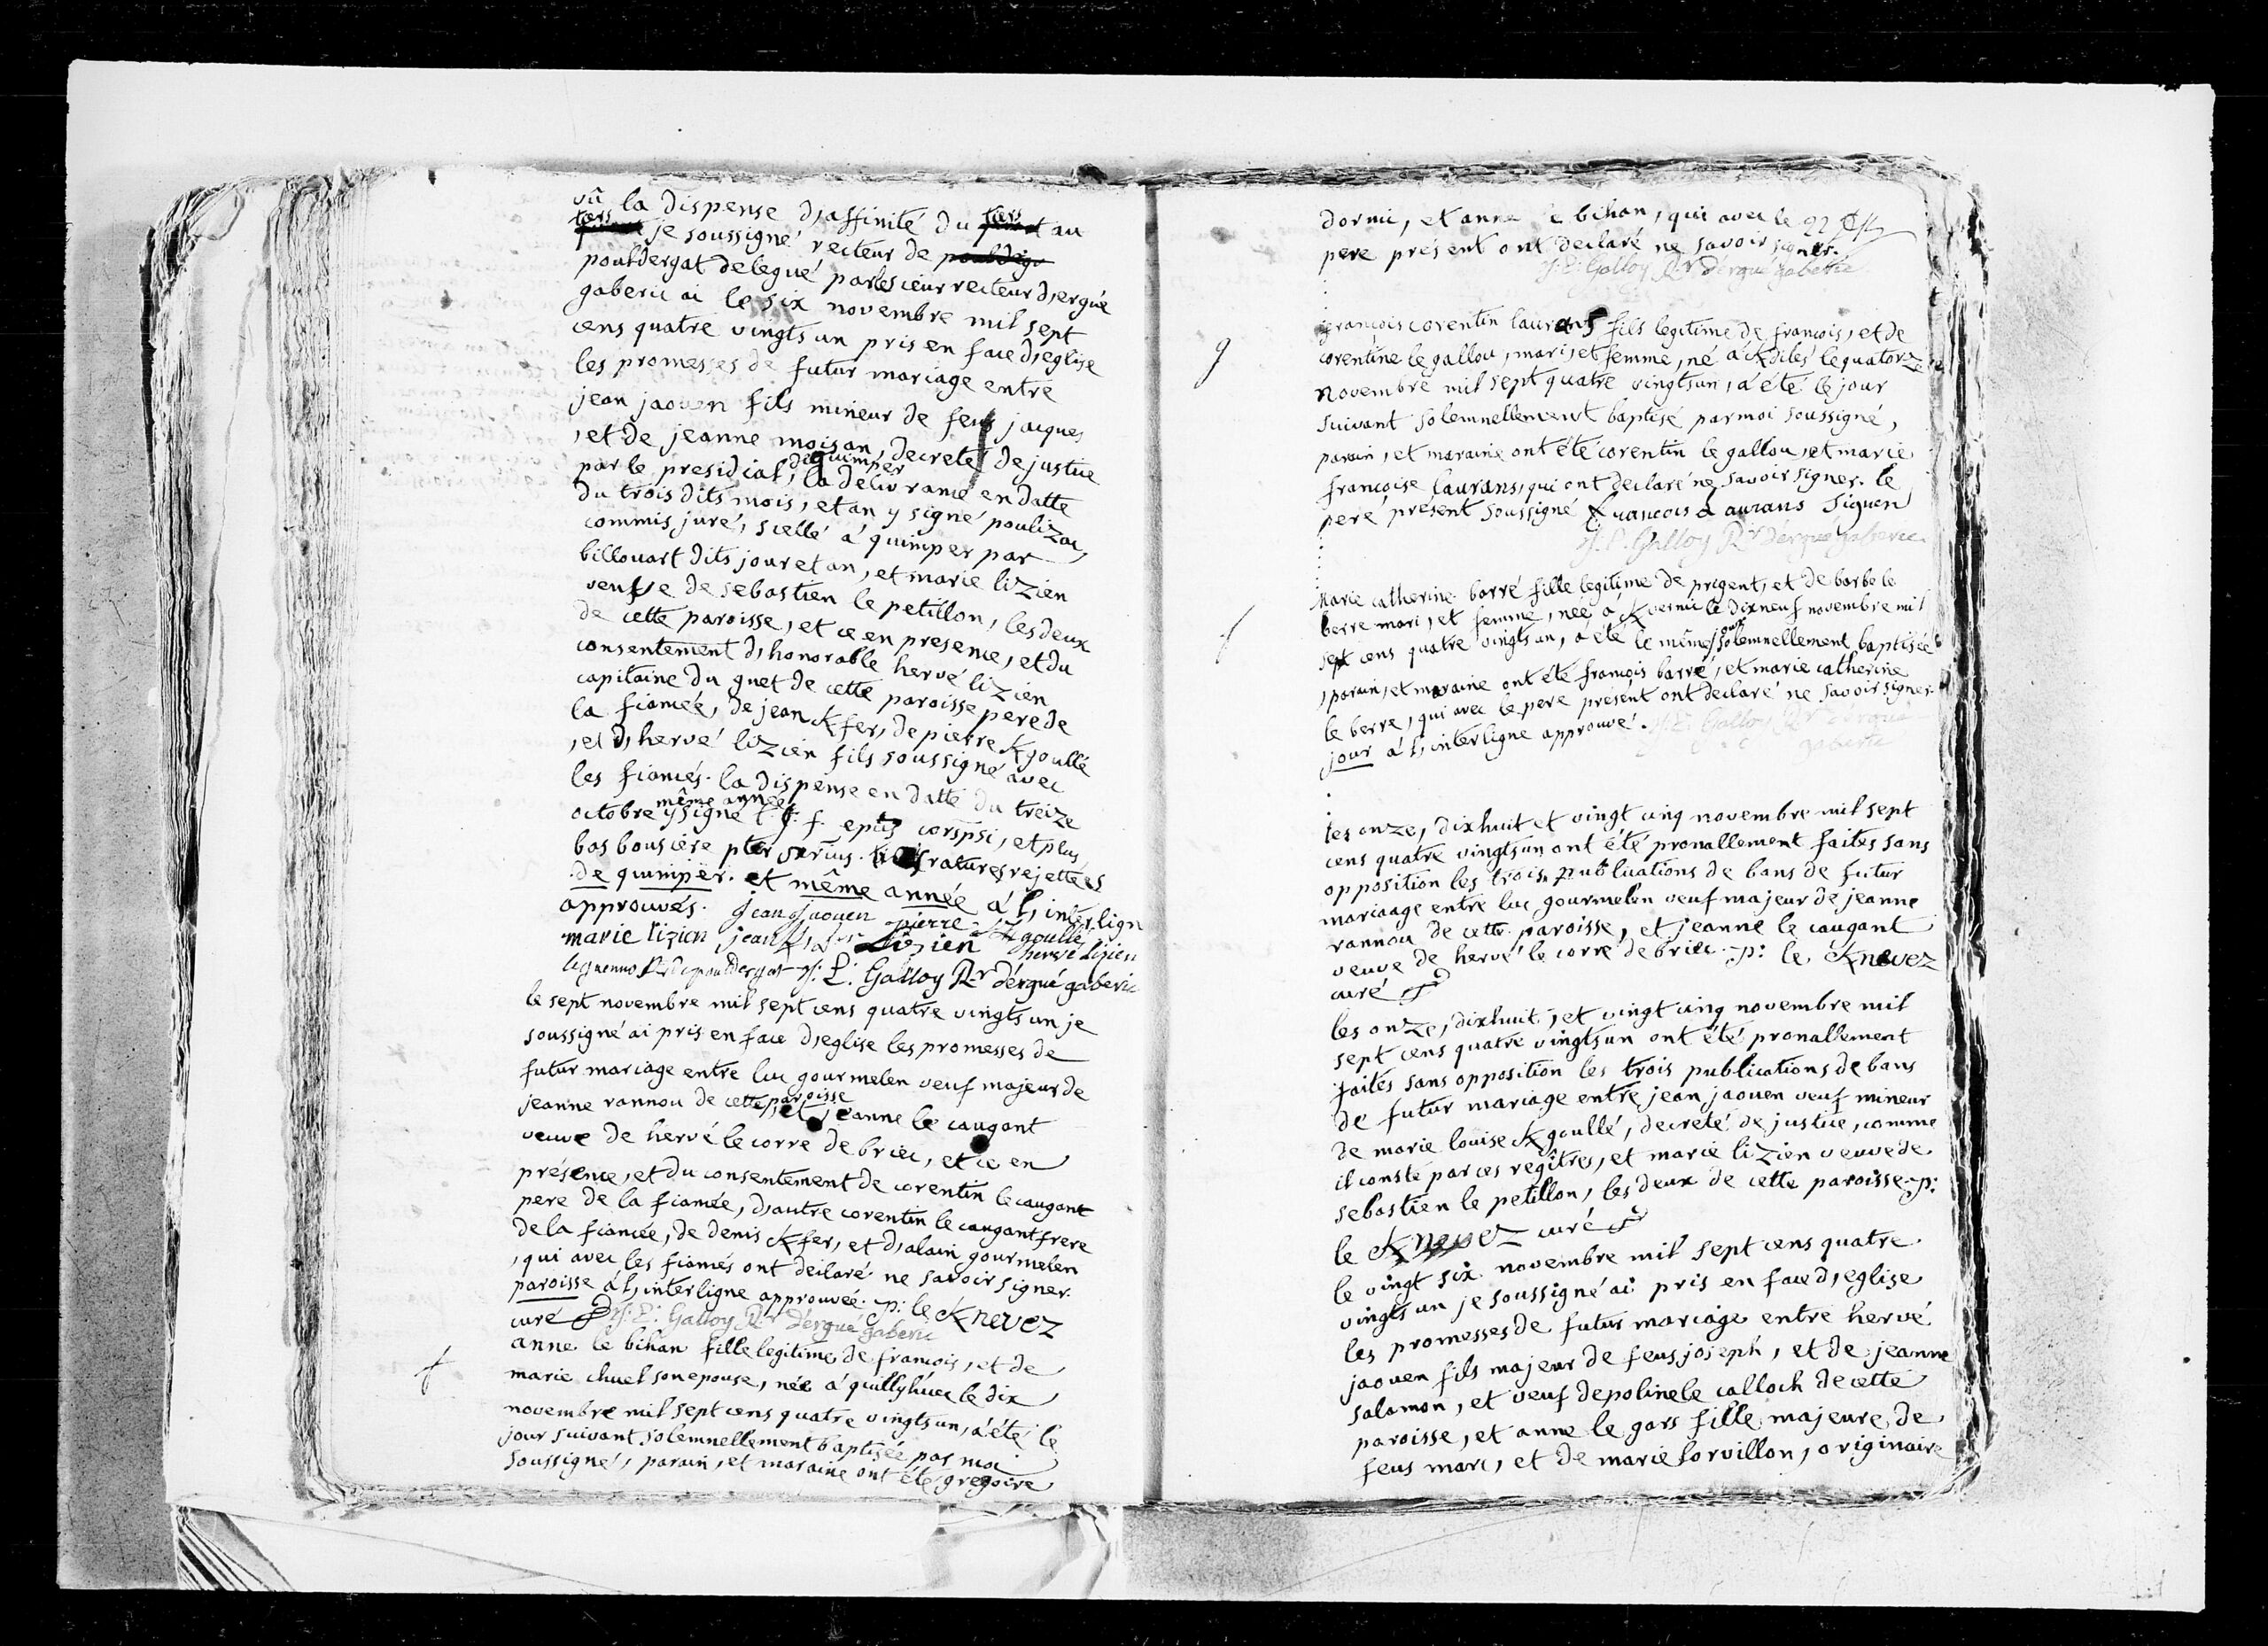 vû la dispense d,affinité du tiers au
tiers je soussigné recteur de pouldigo
pouldergat delegué par le sieur recteur d,ergué
gaberic ai le six novembre mil sept
cens quatre vingts un pris en face d,eglise
les promesses de futur mariage entre
jean jaouen fils mineur de feu jacques
, et de jeanne moisan, decreté de justice
par le presidial de quimper, la délivrance en datte
du trois dits mois, et an y signé poulizac
commis juré, scellé á quimper par
billouart dits jour et an, et marie lizien
veufve de sebastien le petillon, les deux
de cette paroisse, et ce en presence, et du
consentement d,honorable hervé lizien
capitaine du guet de cette paroisse pere de
la fiancée, de jean Kfer, de pierre Kgoullé
, et d,hervé lizien fils soussigné avec
les fiancés. la dispense en datte du treize
octobre même année y signé t. f. f. epûs corspsi, et plus
bas bousiere pter srius. trois ratures rejettées
de quimper. et même année á l,interlign
approuvés. jean jaouen pierre Kgoullé
marie lizien jean lizien hervé lizien
leguenno Rr de pouldergat J: L: Galloy R.r d'ergué gaberic
le sept novembre mil sept cens quatre vingts un je
soussigné ai pris en face d,eglise les promesses de
futur mariage entre luc gourmelen veuf majeur de
jeanne rannou de cette paroisse, et jeanne le caugant
veuve de hervé le corre de briec, et ce en
présence, et du consentement de corentin le caugant
pere de la fiancée, d,autre corentin le caugant frere
de la fiancée, de denis Kfer, et d,alain gourmelen
, qui avec les fiancés ont déclaré ne savoir signer.
paroisse á l,interligne approuvée. p: le Knevez
curé J: L: Galloy R.r d'ergué gaberic
anne le bihan fille legitime de francois, et de
marie chuel son epouse, née á quillyhuec le dix
novembre mil sept cens quatre vingts un, a été le
jour suivant solemnellement baptisée par moi
soussigné, parain, et maraine ont été gregoire
dormi, et anne le bihan, qui avec le 22
pere présent ont declaré ne savoir signer.
J: L: Galloy R.r d'ergué gaberic
françois corentin laurans fils legitime de françois, et de
corentine le gallou, mari, et femme, né a Kdiles le quatorze
novembre mil sept quatre vingts un, a été le jour
suivant solemnellement baptisé par moi soussigné,
parain, et maraine ont été corentin le gallou, et marie
françoise laurans, qui ont declaré ne savoir signer. le
pere présent soussigné francois Laurans Siguen
J: L: Galloy R.r d'ergué gaberic
Marie catherine barré fille legitime de prigent, et de barbe le
berre mari, et femme, née a Kvernic le dixneuf novembre mil
sept cens quatre vingts un, a été le même jour solemnellement baptisée
, parain, et maraine ont été françois barré, et marie catherine
le berre, qui avec le pere présent ont declaré ne savoir signer.
jour á l,interligne approuvé. J: L: Galloy R.r d'ergué
gaberic
les onze, dixhuit et vingt cinq novembre mil sept
cens quatre vingts un ont été pronallement faites sans
opposition les trois publications de bans de futur
mariaage entre luc gourmelen veuf majeur de jeanne
rannou de cette paroisse, et jeanne le caugant
veuve de hervé le corre de briec. p: le Knevez
curé
les onze, dixhuit, et vingt cinq novembre mil
sept cens quatre vingts un ont été pronallement
faites sans opposition les trois publications de bans
de futur mariage entre jean jaouen veuf mineur
de marie louise Kgoullé, decreté de justice, comme
il conste par ces regîtres, et marie lizien veuve de
sebastien le petillon, les deux de cette paroisse. p:
le Knevez curé
le vingt six novembre mil sept cens quatre
vingts un je soussigné ai pris en face d,eglise
les promesses de futur mariage entre hervé
jaouen fils majeur de feus joseph, et de jeanne
salamon, et veuf de poline le calloch de cette
paroisse, et anne le gars fille majeure de
feus marc, et de marie lorvillon, originaire